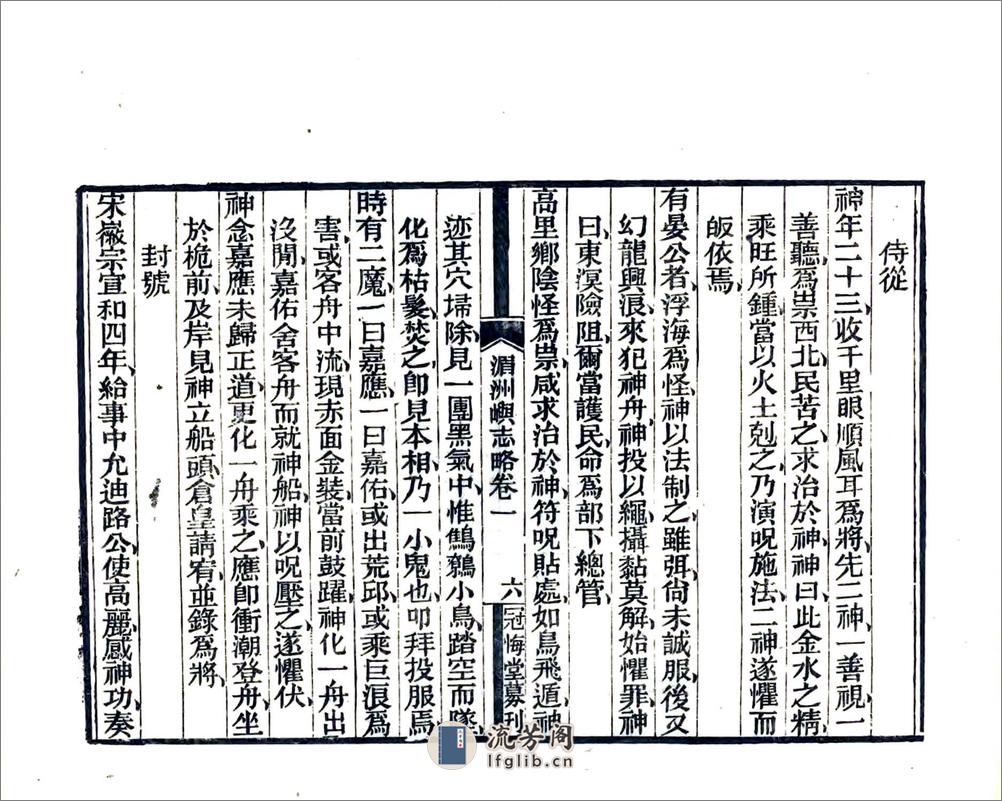 侍從
神年二十三收千里眼順風耳爲將先二神一善視一
善聽爲祟西北民苦之求治於神神曰此金水之精
乘旺所鍾當以火土剋之乃演呪施法二神遂懼而
皈依焉
有晏公者浮海爲怪神以法制之雖弭尙未誠服後又
幻龍興浪來犯神舟神投以繩攝黏莫解始懼罪神
曰東溟險阻爾當護民命爲部下總管
高里鄉陰怪爲祟咸求治於神符呪貼處如鳥飛遁神
湄洲嶼志略卷一
六
冠悔堂募刊
迹其穴埽除見一團黑氣中惟鷦鷯小鳥踏空而墜
化爲枯髮焚之卽見本相乃一小鬼也叩拜投服焉
時有二魔一曰嘉應一曰嘉佑或出荒邱或乘巨浪爲
害或客舟中流現赤面金裝當前鼓躍神化一舟出
沒閒嘉佑舍客舟而就神船神以呪壓之遂懼伏
神念嘉應未歸正道更化一舟乘之應卽衝潮登舟坐
於桅前及岸見神立船頭倉皇請宥並錄爲將
封號
宋徽宗宣和四年給事中允迪路公使高麗感神功奏
流芳阁
lfglib.cn